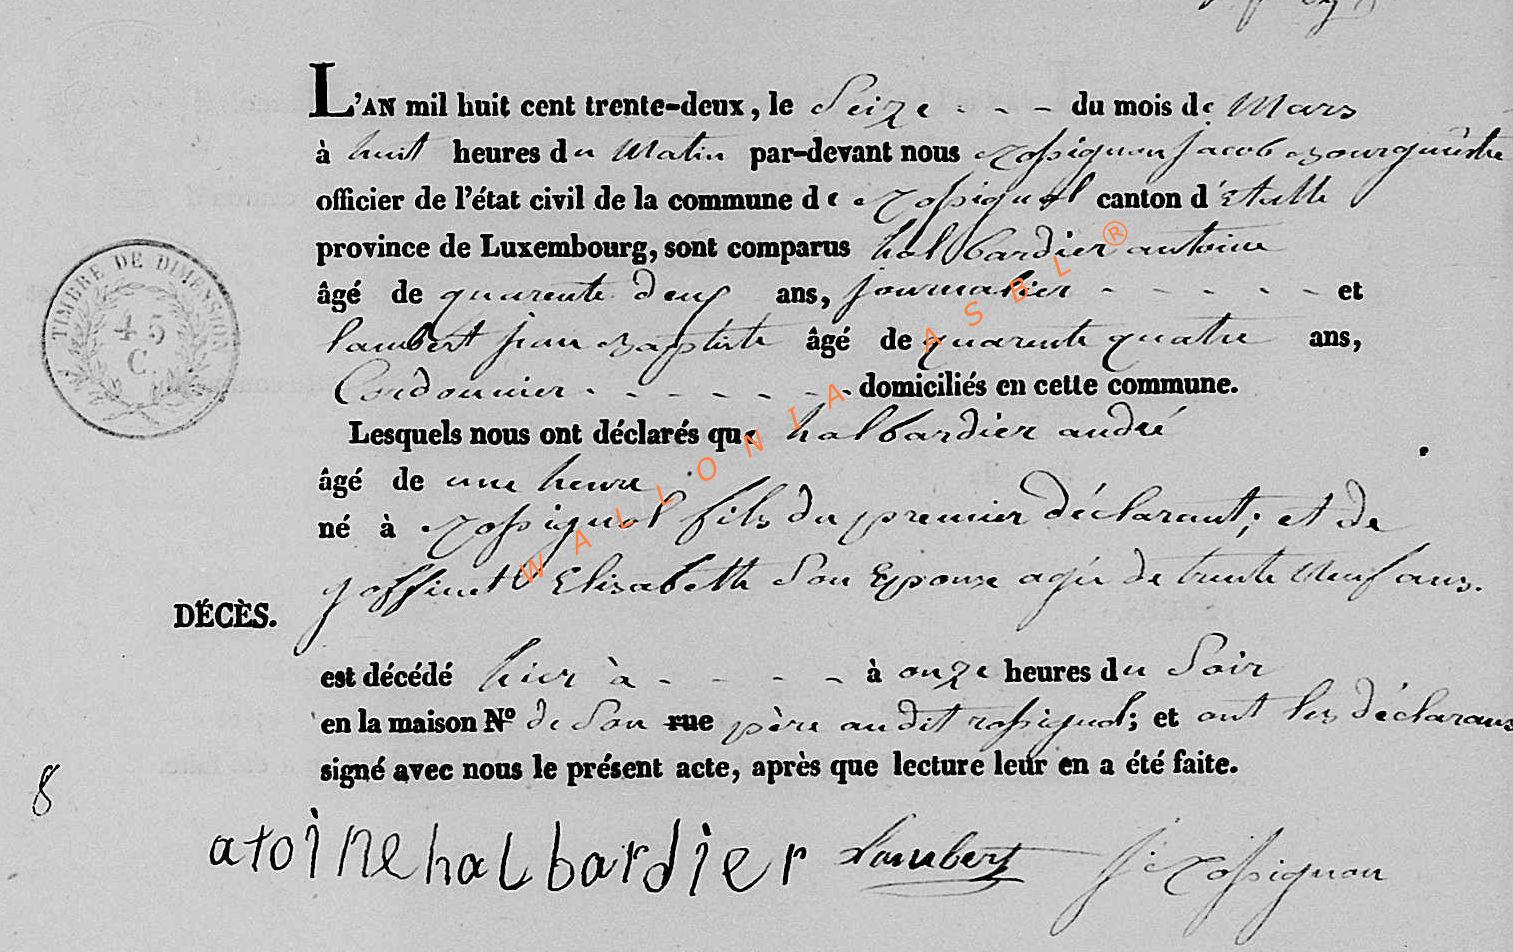 L'AN mil huit cent trente-deux, le Seize - - - du mois de Mars
à huit heures du Matin par-devant nous rossignon jacob Bourguestre
officier de l'état civil de la commune de rossignol canton d'Etalle
province de Luxembourg, sont comparus halbardier antoine
âgé de quarente deux ans, journalier - - - - - et
lambert jean Baptiste âgé de quarente quatre ans,
Cordonnier - - - - - - domiciliés en cette commune.
Lesquels nous ont déclarés que halbardier andré
âgé de une heure
né à rossignol fils du premier déclarant; et de
goffinet Elisabette Son Epouse agée de trente Neuf ans.
DÉCÈS.
est décédé hier à - - - - à onze heures du Soir
en la maison Nº de Son rue père au dit rossignol; et ont les déclarans
signé avec nous le présent acte, après que lecture leur en a été faite.
8
atoine halbardier Lambert J rossignon
TIMBRE DE DIMENSION
45
C.
WALLONIA ASBL ®